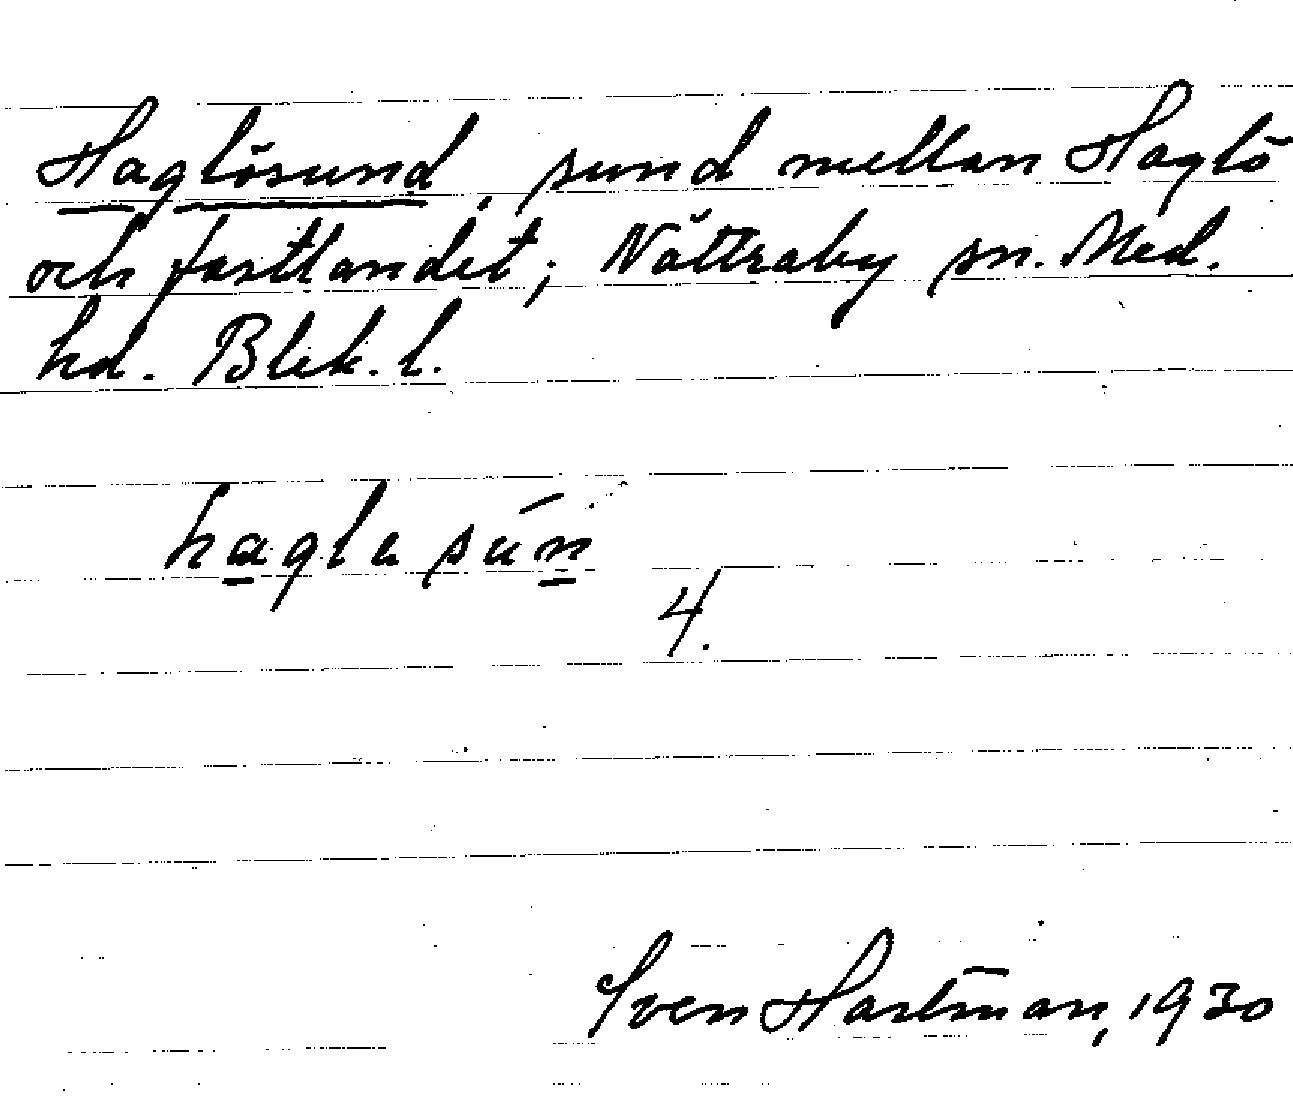 Haglösund, sund mellan Haglö
och fastlandet; Nättraby sn. Med.
hd. Blek. l.
hagla sún
4.
Sven Hartman, 1930